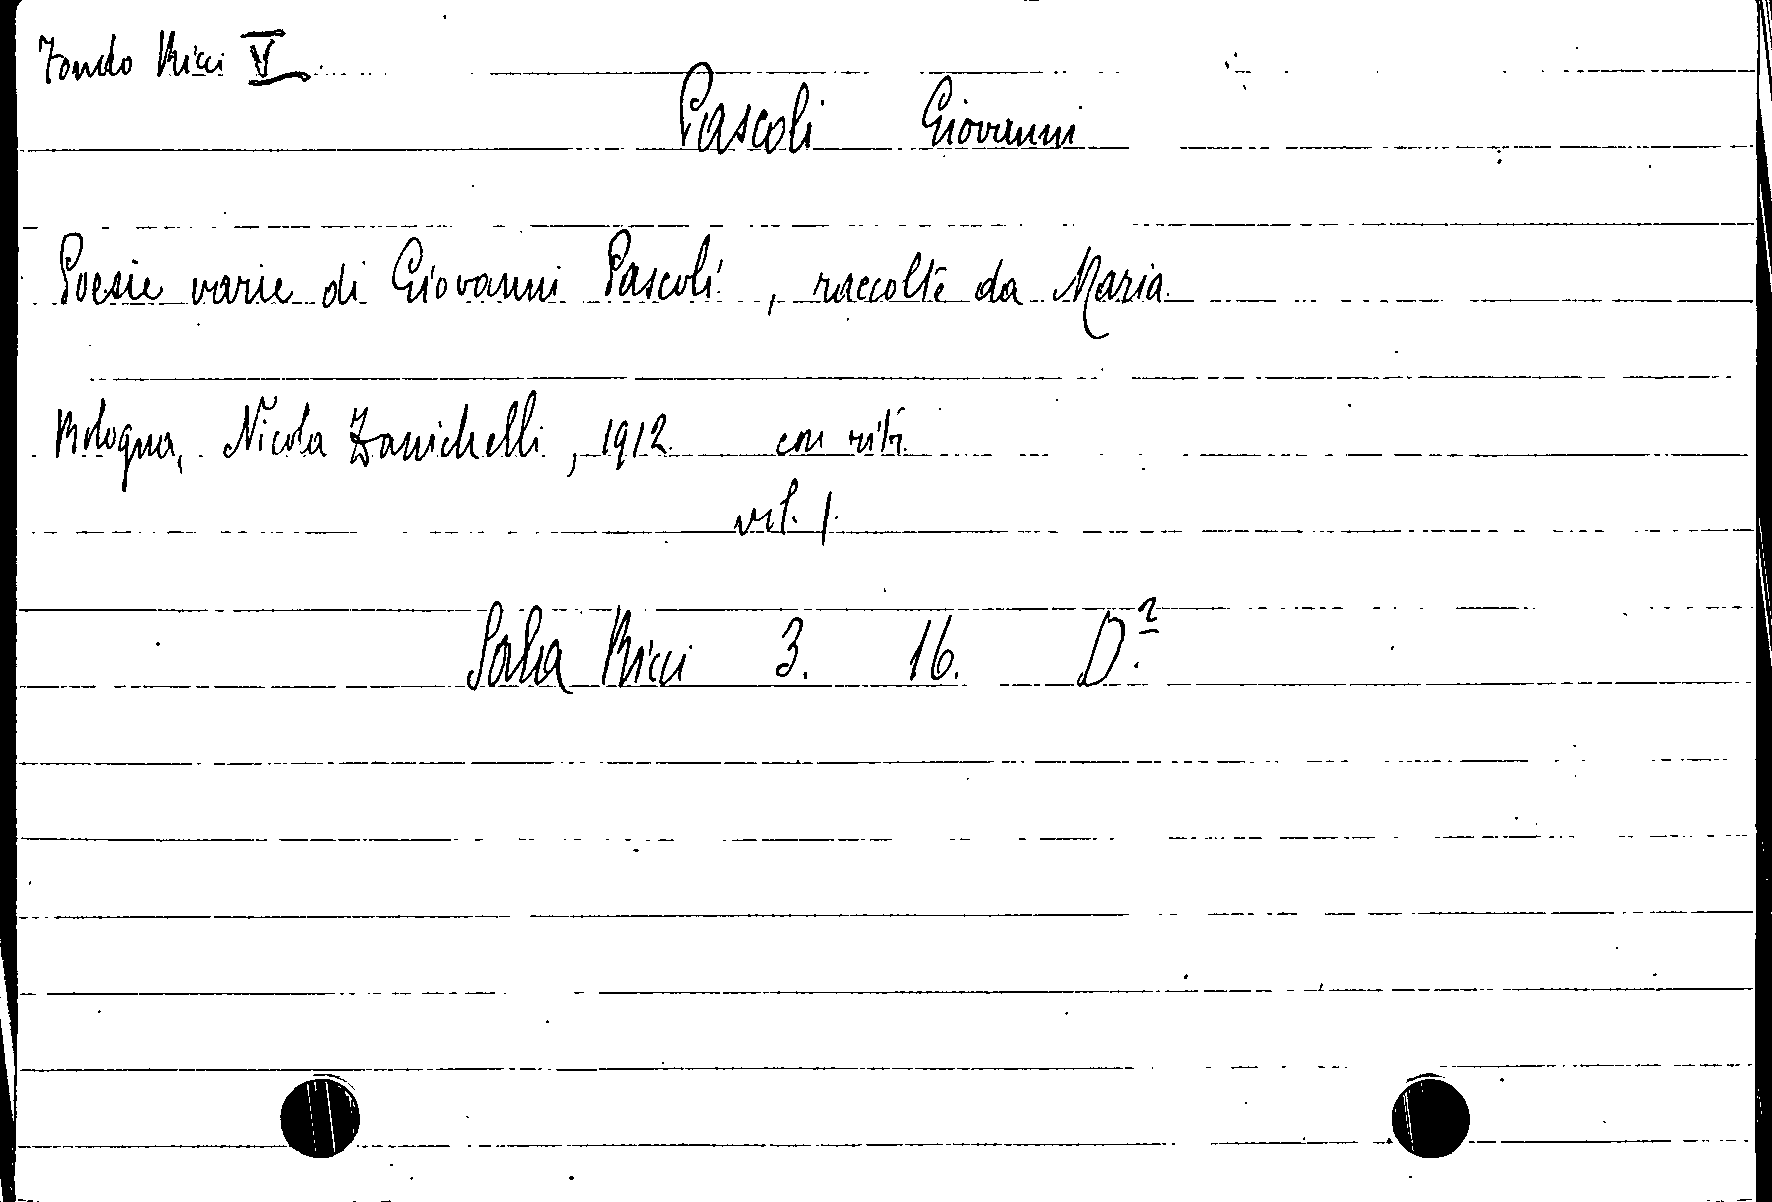 Fondo Ricci V
Pascoli Giovanni
Poesie varie di Giovanni Pascoli, raccolte da Maria
Bologna, Nicola Zanichelli, 1912 con ritr.
vol. 1.
Sala Ricci 3. 16. D.2